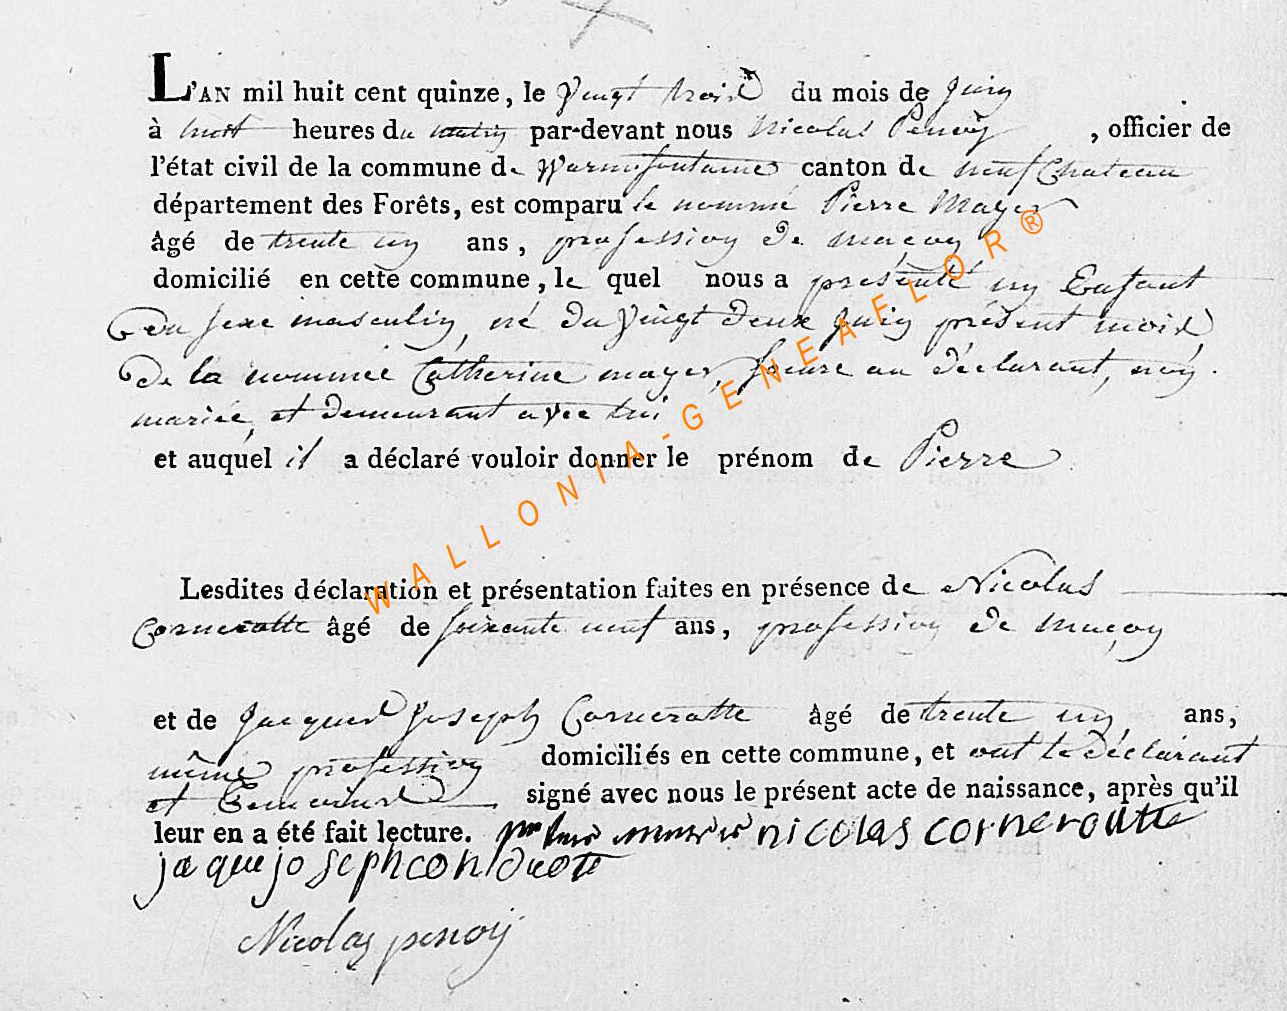 L'AN mil huit cent quinze, le vingt trois du mois de Juin
à huit heures du matin par-devant nous Nicolas Penoÿ , officier de
l'état civil de la commune de Warmifontaine canton de neufChateau
département des Forêts, est comparu le nommé Pierre Mayer
âgé de trente un ans, profession de maçon
domicilié en cette commune, le quel nous a présenté un Enfant
du sexe masculin, né du vingt deux Juin présent mois,
de la nommée Catherine mayer, soeure au déclarant, non
mariée, et demeurant avec lui
et auquel il a déclaré vouloir donner le prénom de Pierre
WALLONIA-GENEAFLOR®
Lesdites déclaration et présentation faites en présence de Nicolas
Corneratte âgé de soixante neuf ans, profession de maçon
et de Jacques Joseph Corneratte âgé de trente un ans,
même profession domiciliés en cette commune, et ont le déclarant
et temoins signé avec nous le présent acte de naissance, après qu'il
leur en a été fait lecture. nicolas corneroutte
jaque joseph
Nicolas penoÿ